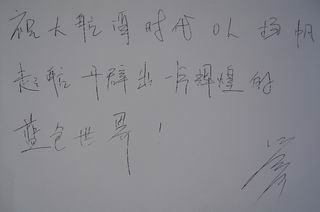 祝大航海时代OL扬帆
起航开辟出一片辉煌的
蓝色世界!